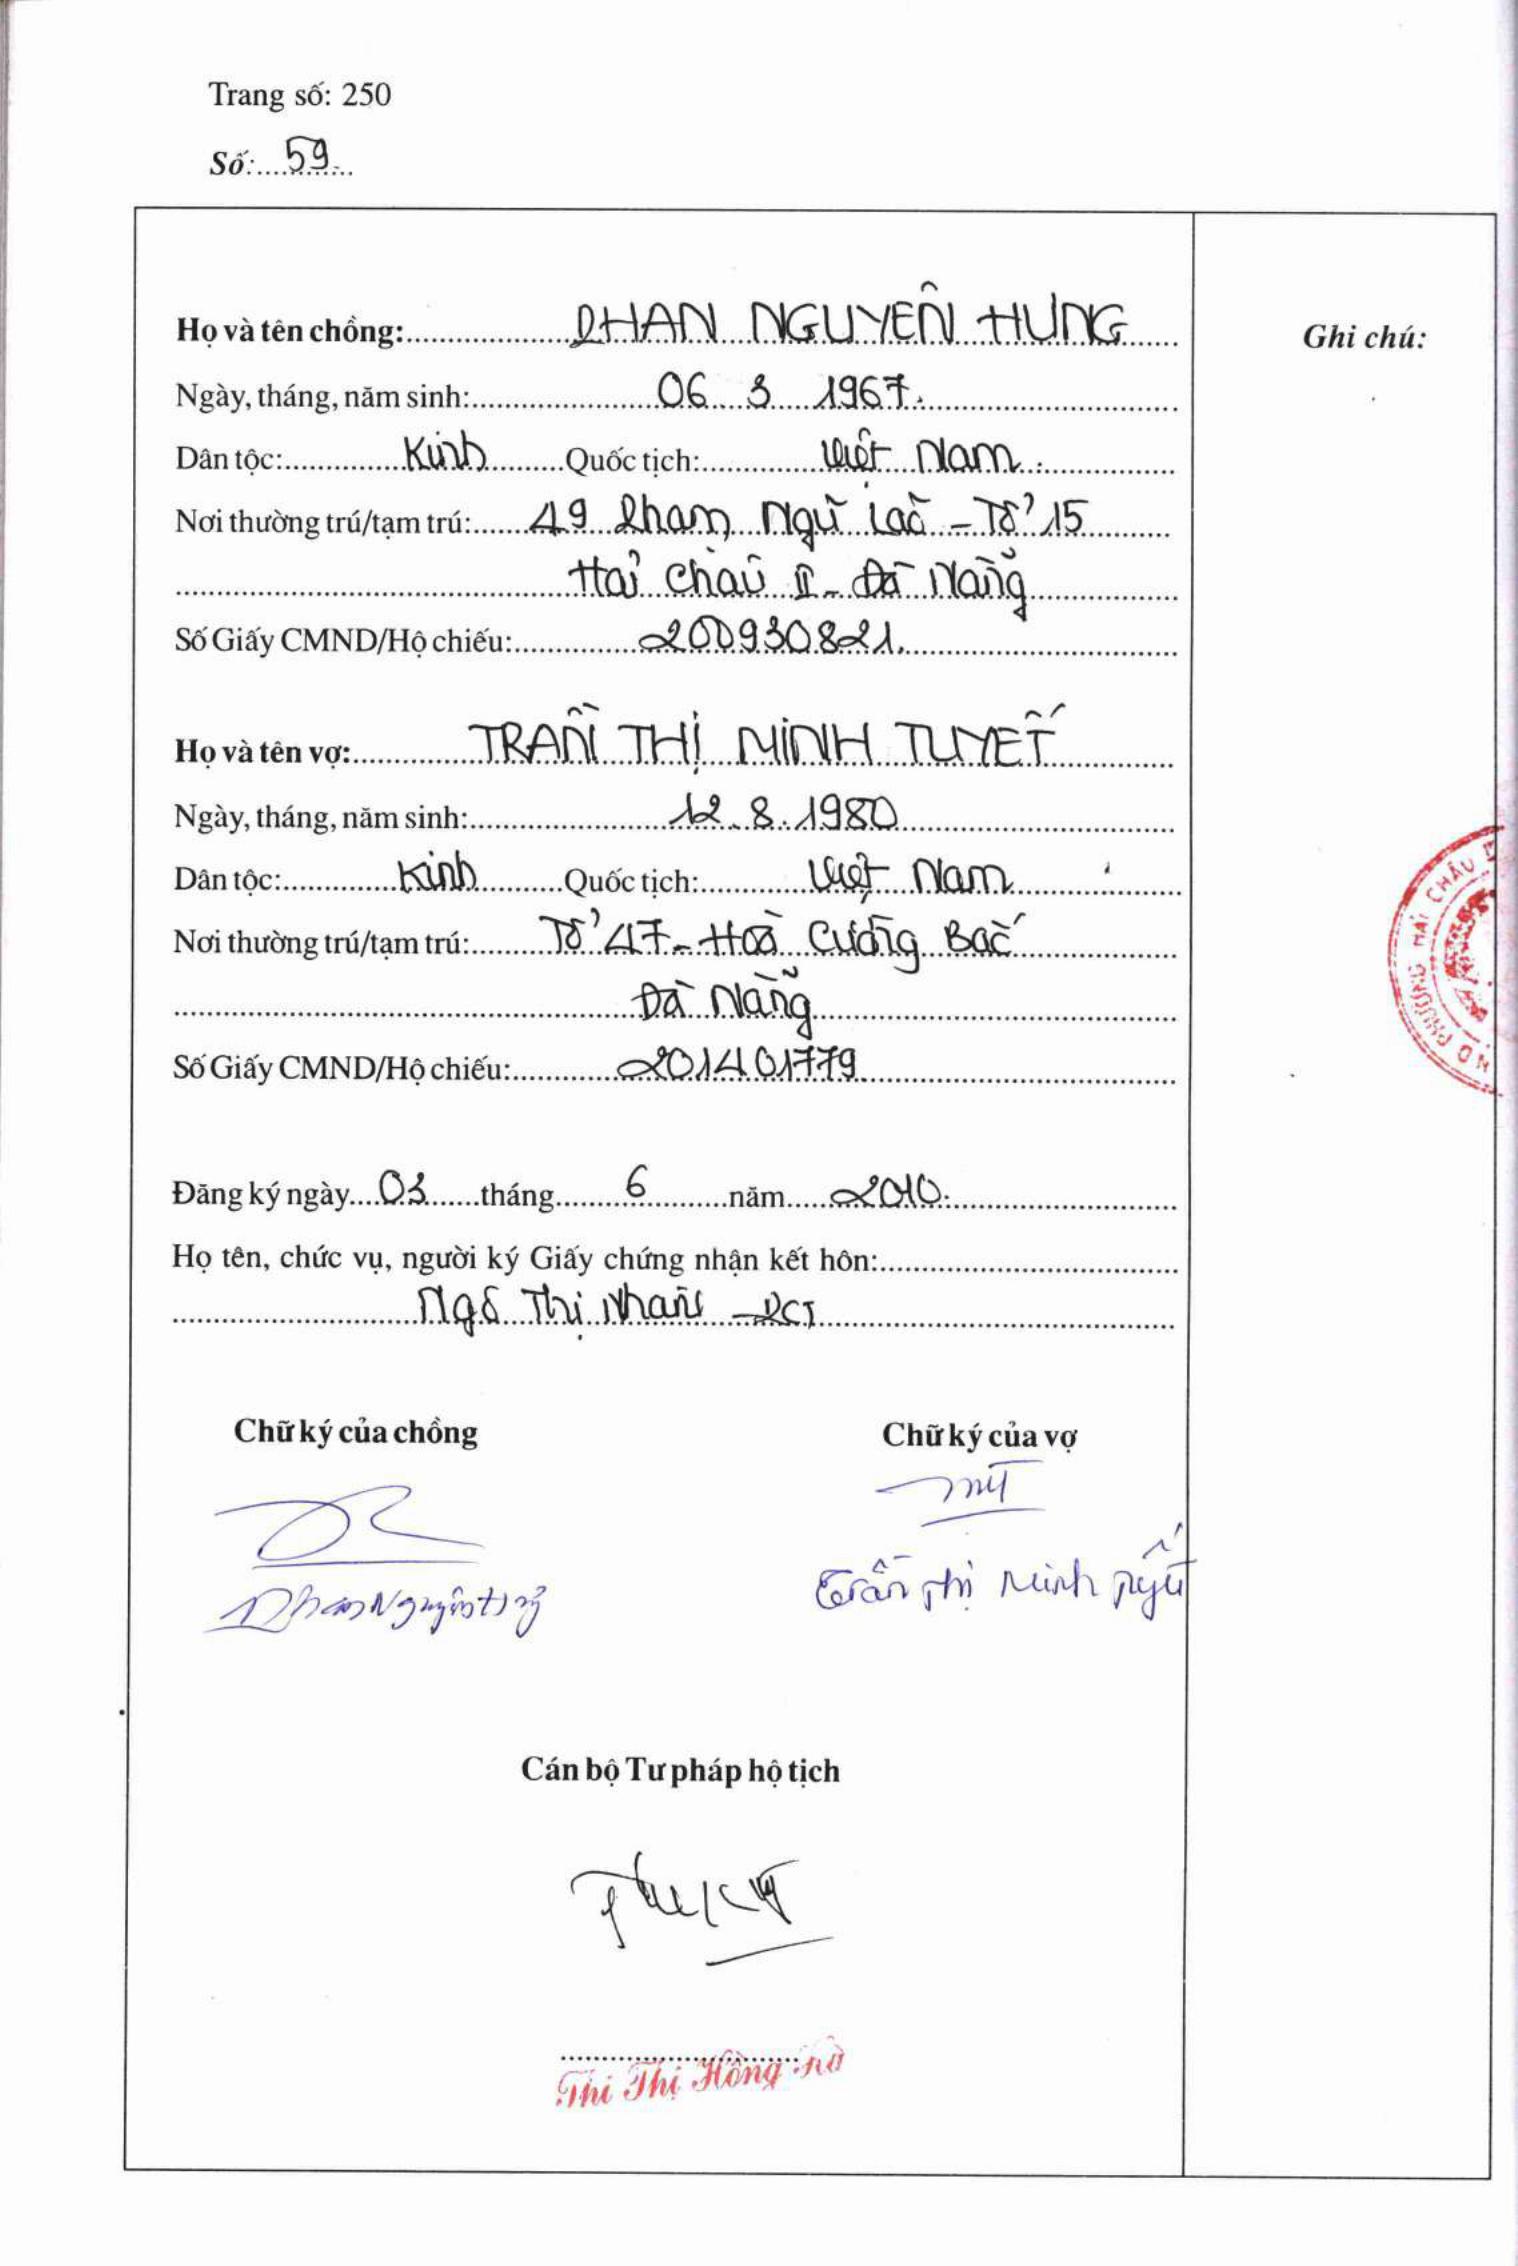 Trang số: 250
Số: 59
Họ và tên chồng: PHAN NGUYÊN HƯNG
Ghi chú:
Ngày, tháng, năm sinh: 06 3 1967.
Dân tộc: Kinh Quốc tịch: Việt Nam
Nơi thường trú/tạm trú: 49 Phạm Ngũ Lão - Tổ 15
Hải Châu II - Đà Nẵng
Số Giấy CMND/Hộ chiếu: 200930821.
Họ và tên vợ: TRẦN THỊ MINH TUYẾT
Ngày, tháng, năm sinh: 12.8.1980
Dân tộc: Kinh Quốc tịch: Việt Nam
Nơi thường trú/tạm trú: Tổ 47 - Hoà Cường Bắc
Đà Nẵng
Số Giấy CMND/Hộ chiếu: 201401779
PHƯỜNG HẢI CHÂU
Đăng ký ngày 03 tháng 6 năm 2010.
Họ tên, chức vụ, người ký Giấy chứng nhận kết hôn:
Ngô Thị Nhạn - PCT
Chữ ký của chồng Chữ ký của vợ
Phan Nguyên Hưng Trần Thị Minh Tuyết
Cán bộ Tư pháp hộ tịch
Thi Thị Hồng